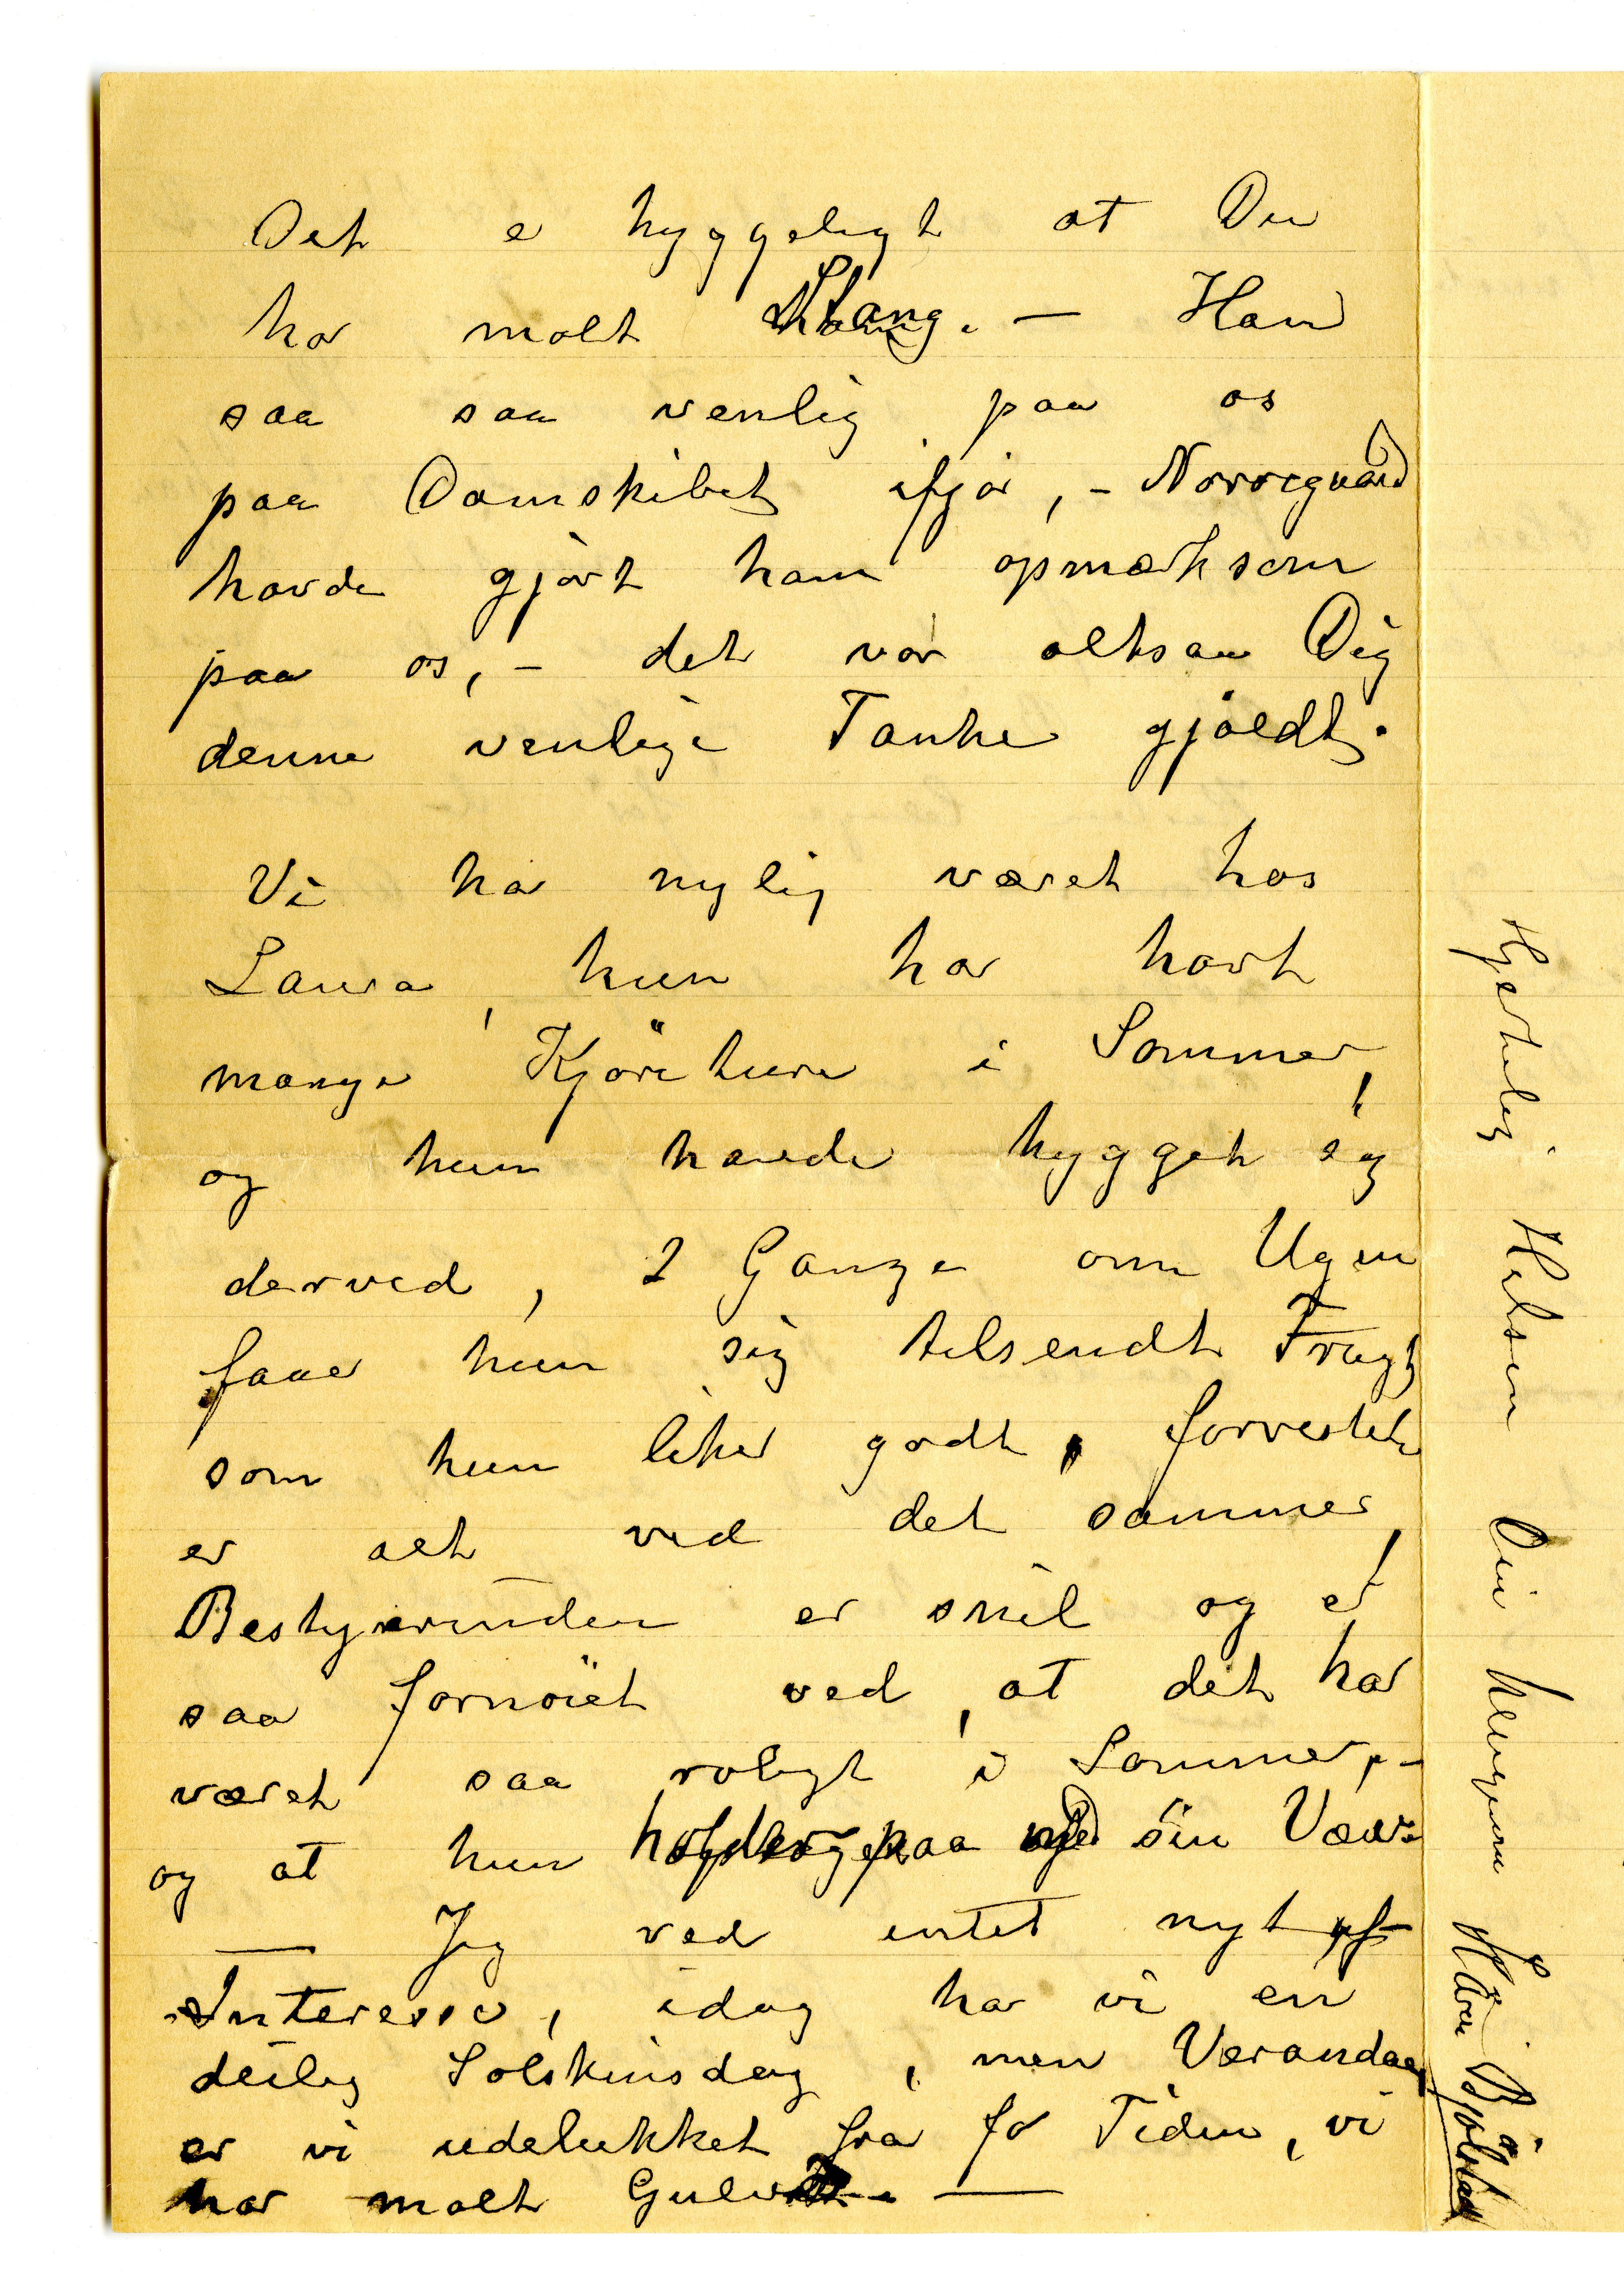 Det e hyggeligt at Du
ha malt Stang. — Han
saa saa venlig paa os
paa Damskibet ifjor, – Nørregaard
havde gjørt ham opmærksom
paa os, – det var altsaa Dig
denne venlige Tanke gjaldt.
Vi ha nylig været hos
Laura, hun ha havt
mange Kjøreture i Sommer,
og hun havde hygget sig
derved, 2 Gange om Ugen
faaer hun sig tilsendt Frugt
som hun liker godt, forresten
er alt ved det samme,
Bestyrerinden er snil og er
saa fornøiet ved, at det har
været saa roligt i Sommer, –
og at hun holder paa med sin Væv.
— Jeg ved intet nyt af
Interesse, idag ha vi en
deilig Solskinsdag, men Verandaen
er vi udelukket fra for Tiden, vi
har malt Gulvet. —
Hjertelig Hilsen Din hengivne Karen Bjølstad